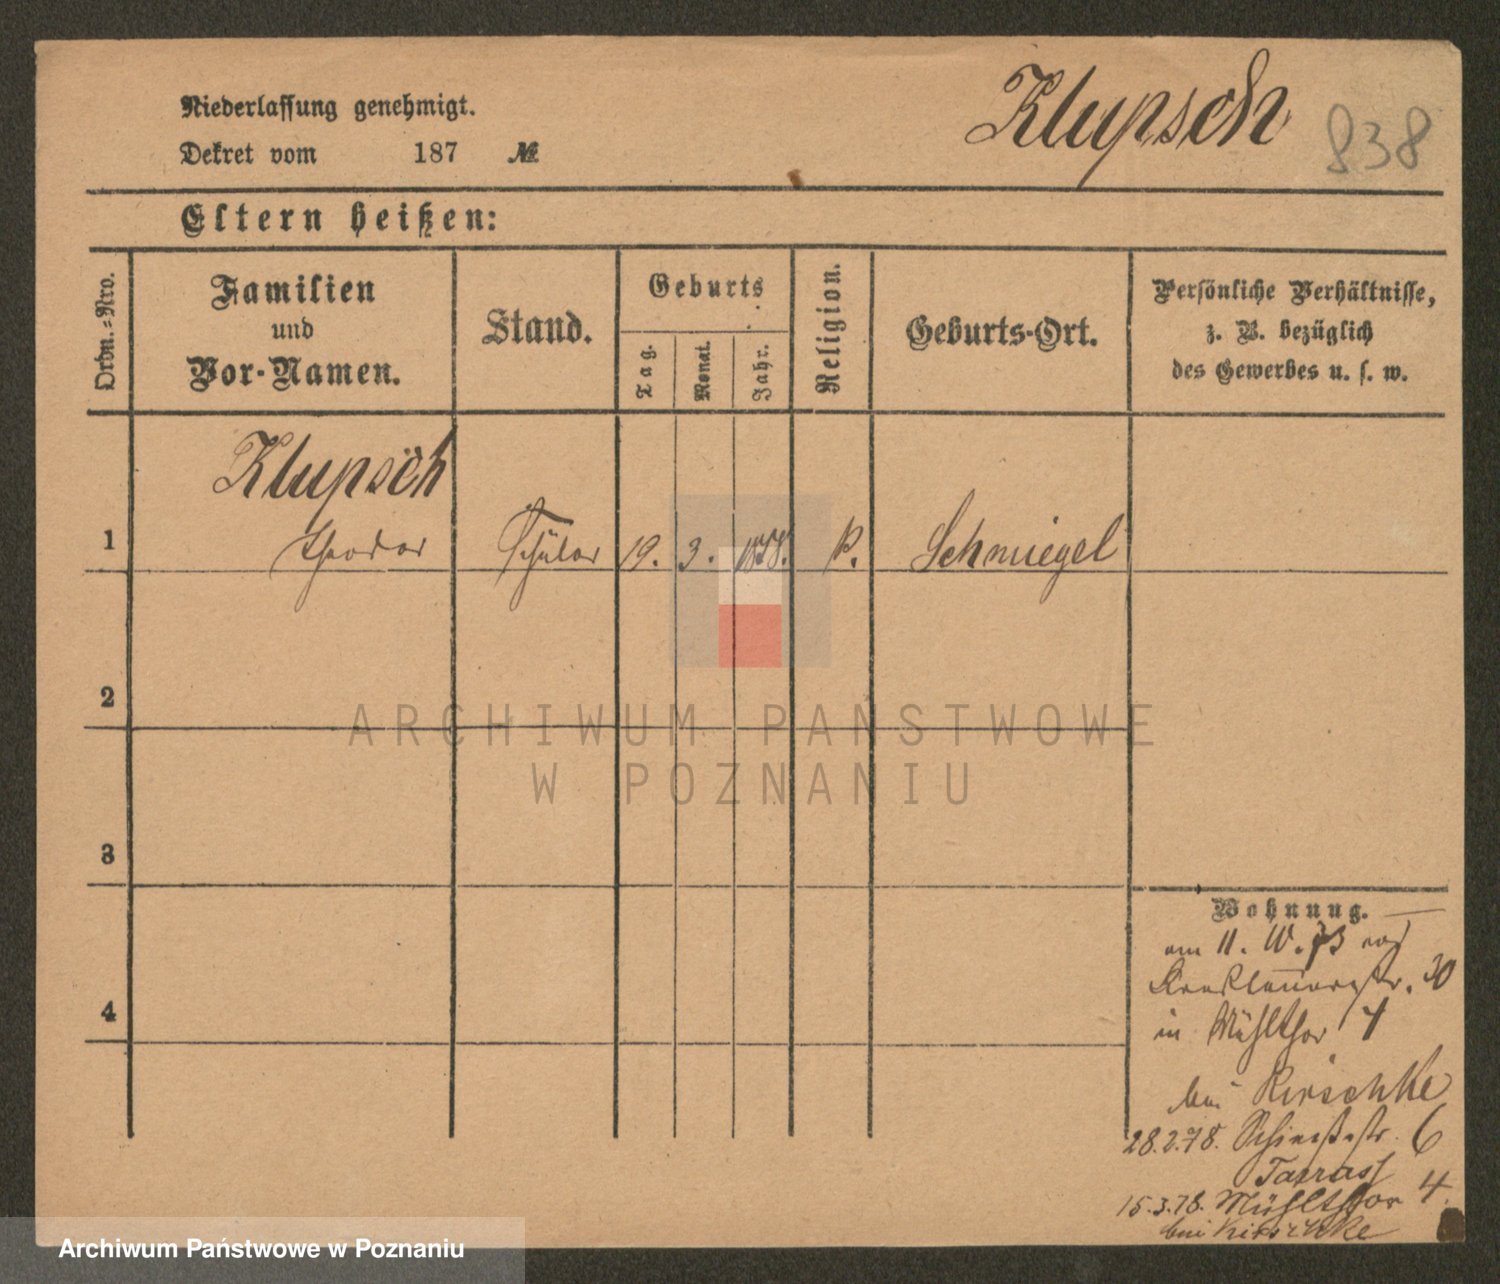 Niederlassung genehmigt.
Dekret vom 187 №
Klupsch 838
Eltern heißen:
Ordn.=Nro.
Familien
und
Vor-Namen.
Stand.
Geburts
Tag.
Monat.
Jahr.
Religion.
Geburts-Ort.
Persönliche Verhältnisse,
z. B. bezüglich
des Gewerbes u. s. w.
Klupsch
1 Theodor Schüler 19. 3. Schmiegel
2
ARCHIWUM PAŃSTWOWE
W POZNANIU
3
Wohnung.
am 11.
30
4
in Mühlthor 4
bei Kirschke
28.2.78. 6
15.3.78. Mühlthor 4.
bei Kirschke
Archiwum Państwowe w Poznaniu